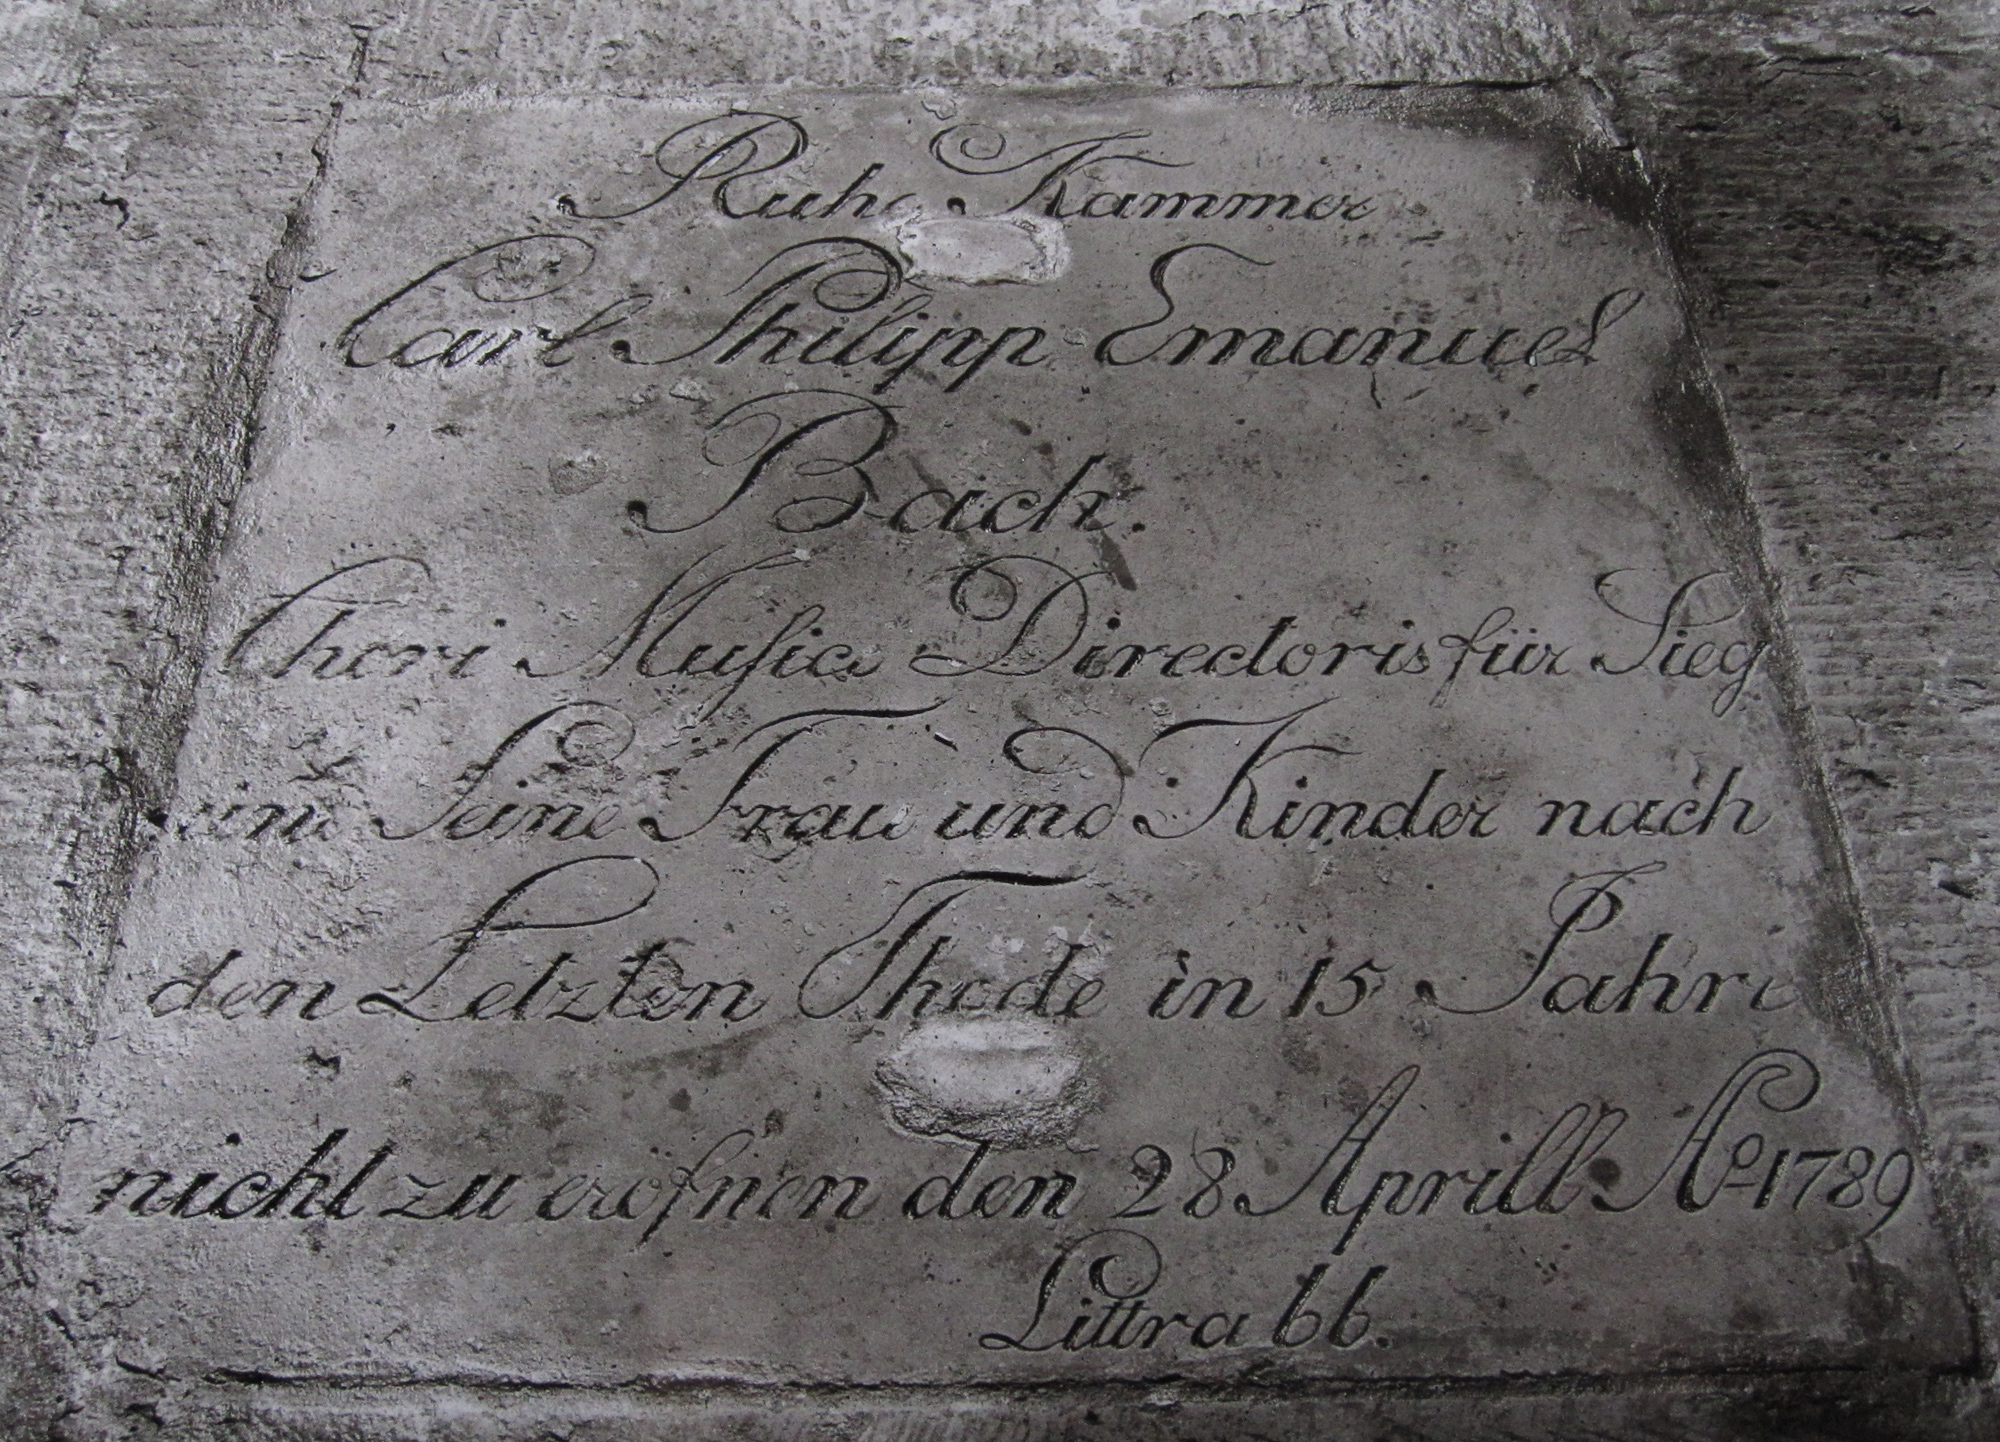 Ruhe Kammer
Carl Philipp Emanuel
Bach.
Chori Musici Directoris für Sieg
und Seine Frau und Kinder nach
den Letzten Thode in 15 Jahre
nicht zu erofnen den 28 Aprill Aº 1789
Littra bb.